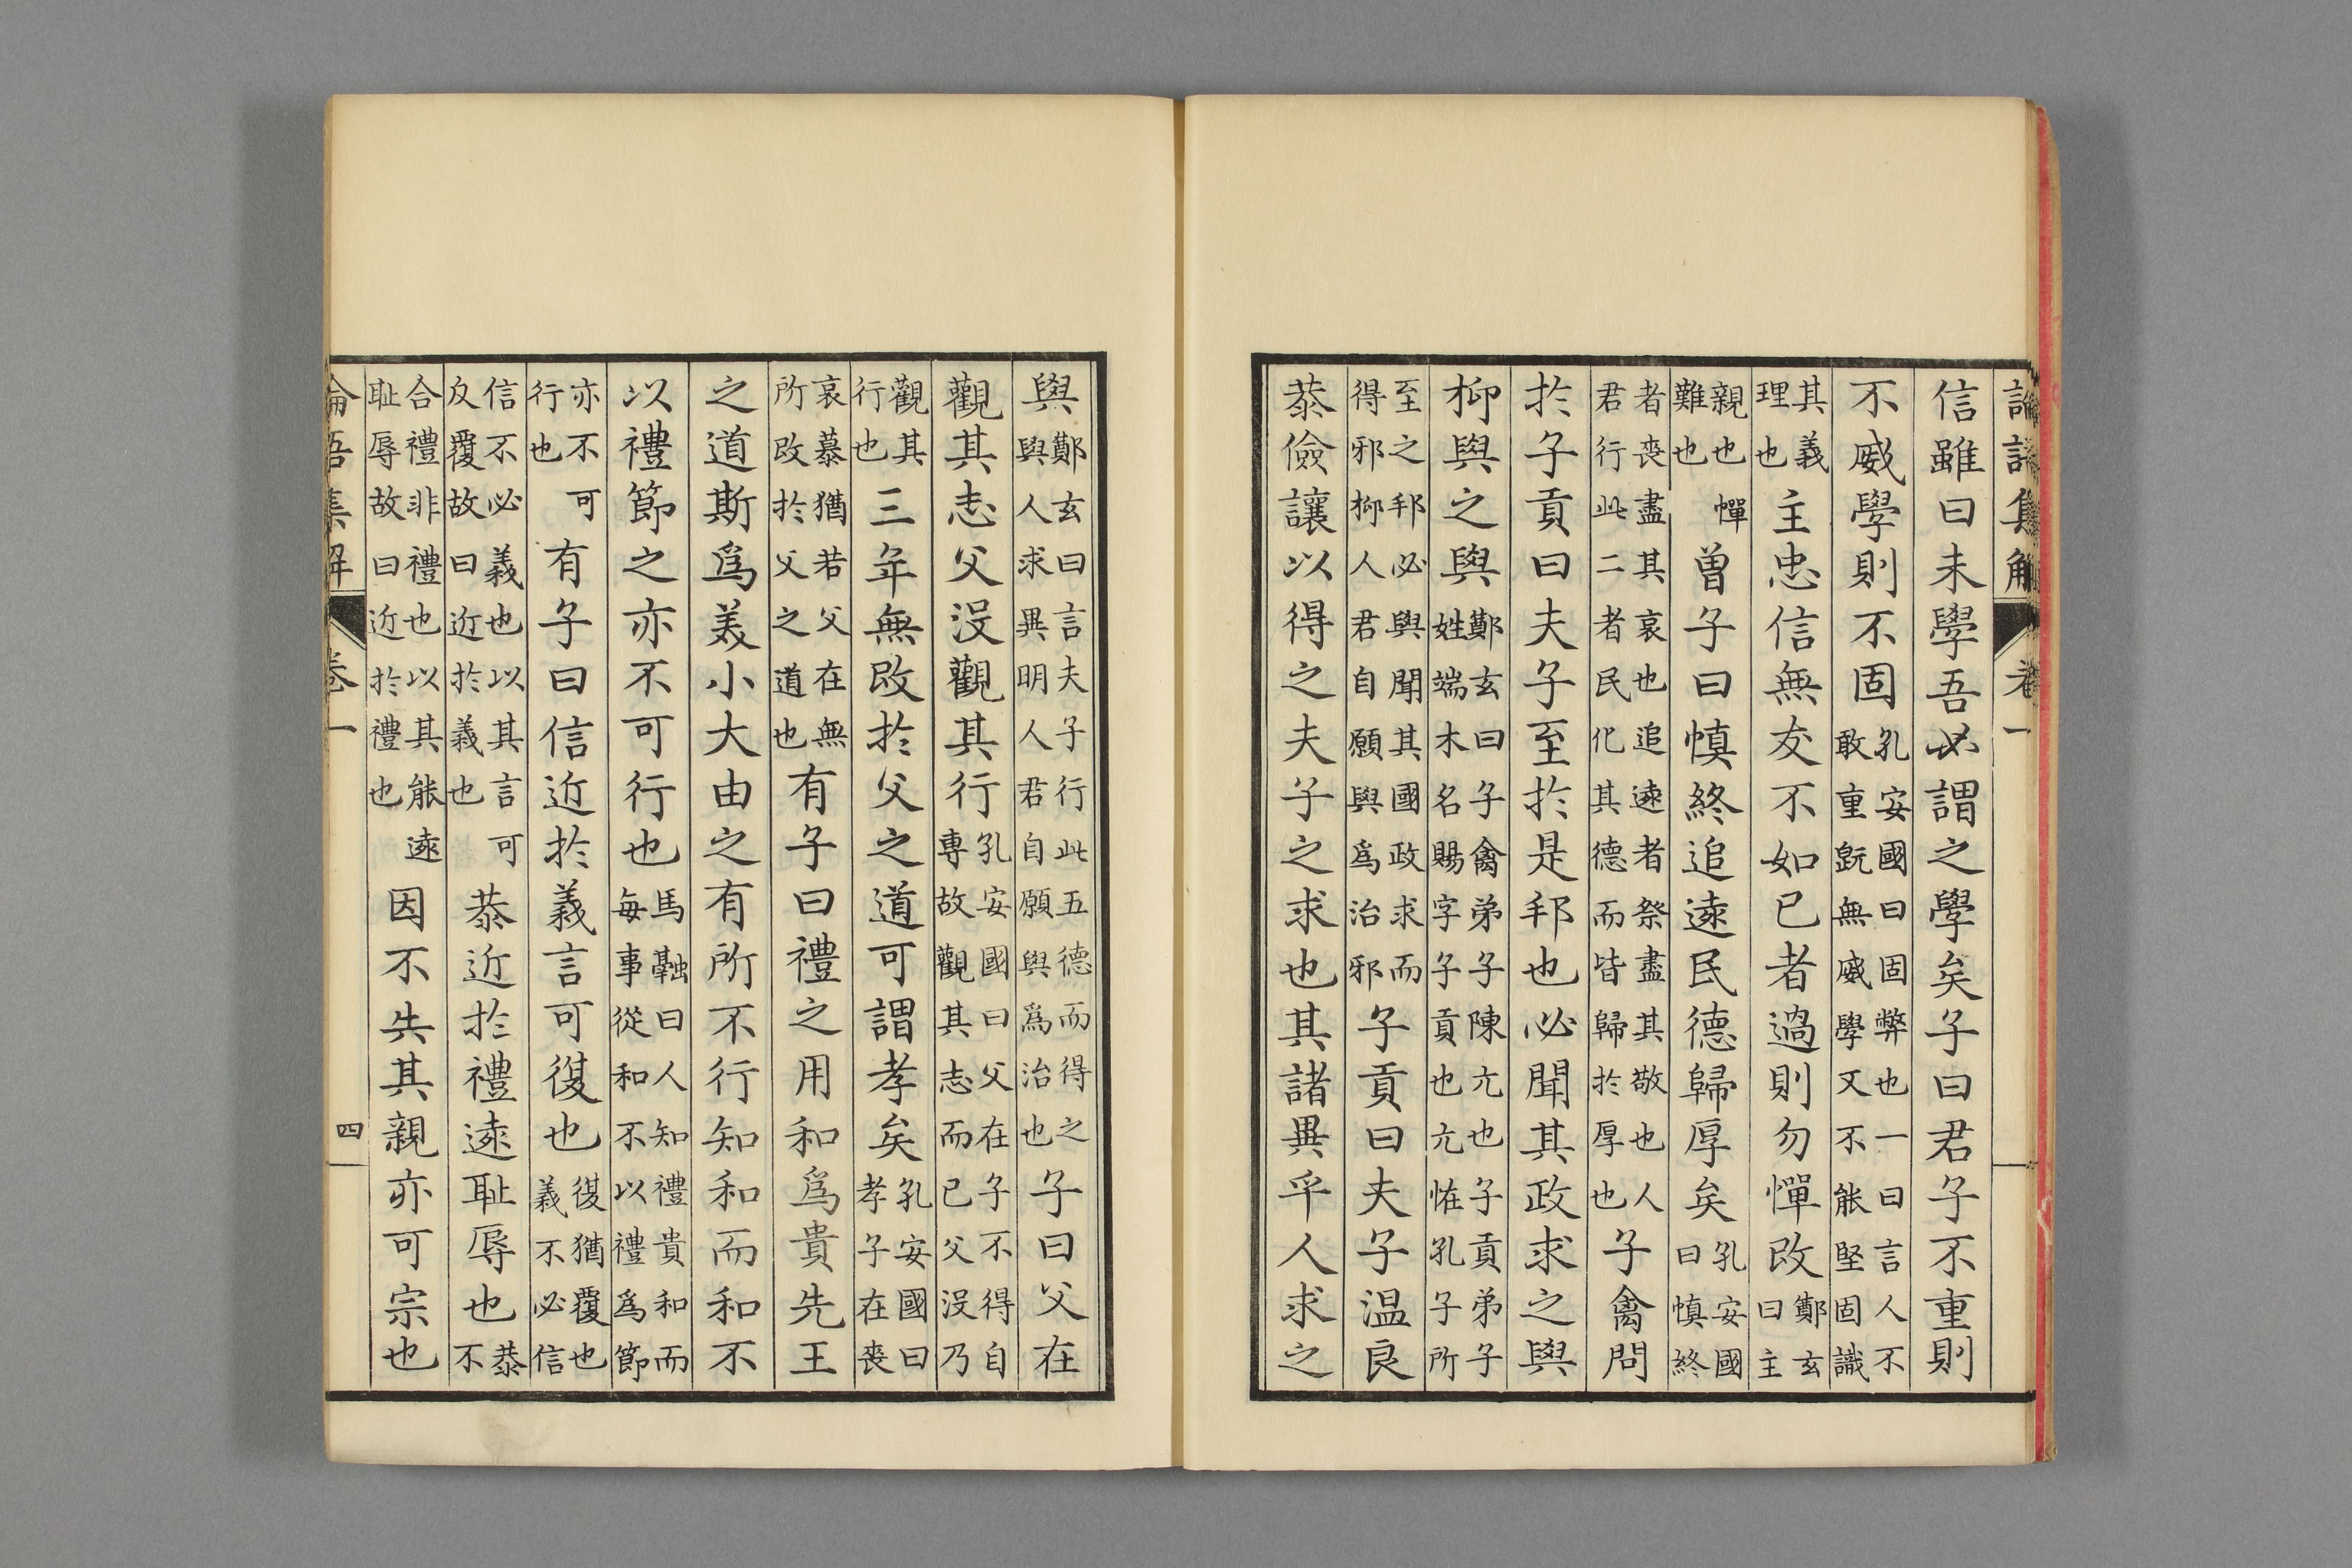 論語集解 卷一
信雖曰未學吾必謂之學矣子曰君子不重則
不威學則不固孔安國曰固弊也一曰言人不敢重旣無威學又不能堅固識
其義理也主忠信無友不如己者過則勿憚改鄭玄曰主
親也憚難也曾子曰慎終追遠民德歸厚矣孔安國曰慎終
者喪盡其哀也追遠者祭盡其敬也人君行此二者民化其德而皆歸於厚也子禽問
於子貢曰夫子至於是邦也必聞其政求之與
抑與之與鄭玄曰子禽弟子陳亢也子貢弟子姓端木名賜字子貢也亢怪孔子所
至之邦必與聞其國政求而得邪抑人君自願與爲治邪子貢曰夫子温良
恭儉讓以得之夫子之求也其諸異乎人求之
與鄭玄曰言夫子行此五德而得之與人求異明人君自願與爲治也子曰父在
觀其志父没觀其行孔安國曰父在子不得自專故觀其志而已父没乃
觀其行也三年無改於父之道可謂孝矣孔安國曰孝子在喪
哀慕猶若父在無所改於父之道也有子曰禮之用和爲貴先王
之道斯爲美小大由之有所不行知和而和不
以禮節之亦不可行也馬融曰人知禮貴和而每事從和不以禮爲節
亦不可行也有子曰信近於義言可復也復猶覆也義不必信
信不必義也以其言可反覆故曰近於義也恭近於禮遠恥辱也恭不
合禮非禮也以其能遠恥辱故曰近於禮也因不失其親亦可宗也
論語集解 卷一 四